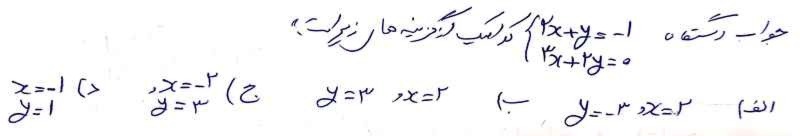 جواب دستگاه { ۲x+y=-۱ کدامیک از گزینه های زیر است؟
۳x+۲y=۰
الف) x=۲ و y=-۳ ب) x=۲ و y=۳ ج) x=-۲ و y=۳ د) x=-۱ y=1